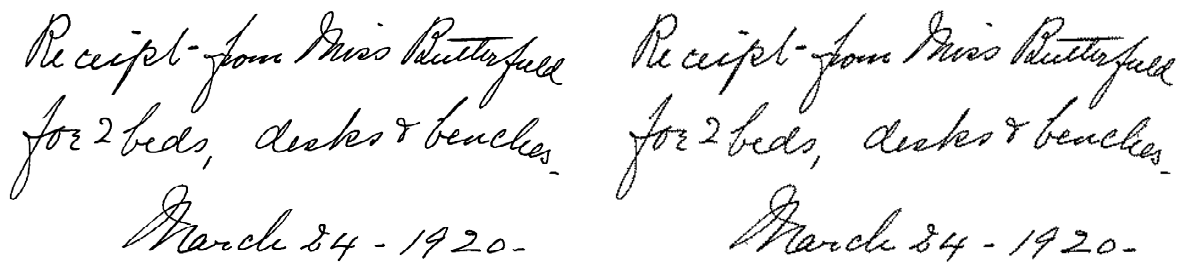 Receipt - from Miss Butterfield
for 2 beds, desks & benches.
March 24 - 1920 -
Receipt - from Miss Butterfield
for 2 beds, desks & benches.
March 24 - 1920 -